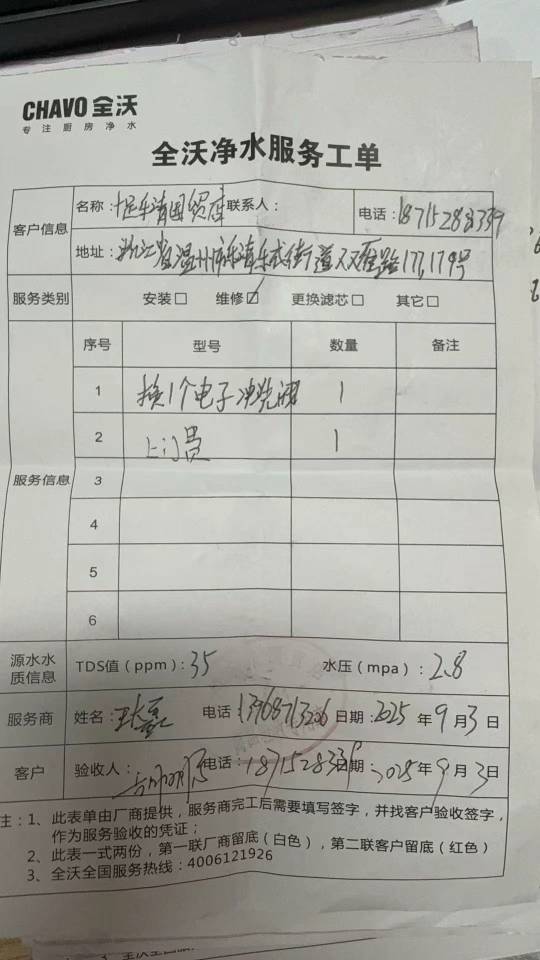 CHAVO 全沃
专注厨房净水
全沃净水服务工单
客户信息
名称：乐清国贸店 联系人： 电话：18715288339
地址：浙江省温州市乐清乐成街道双雁路177,179号
服务类别 安装□ 维修☑ 更换滤芯□ 其它□
服务信息
序号 型号 数量 备注
1 换1个电子冲洗阀 1
2 上门费 1
3
4
5
6
源水水质信息 TDS值（ppm）：35 水压（mpa）：2.8
服务商 姓名： 电话 13968713206 日期：2025年9月3日
客户 验收人： 电话： 日期：2025年9月3日
注：1、此表单由厂商提供，服务商完工后需要填写签字，并找客户验收签字，
作为服务验收的凭证；
2、此表一式两份，第一联厂商留底（白色），第二联客户留底（红色）
3、全沃全国服务热线：4006121926